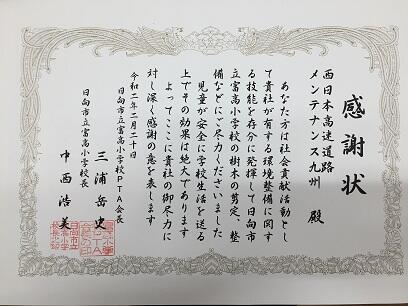 感謝状
西日本高速道路
メンテナンス九州 殿
あなた方は社会貢献活動とし
て貴社が有する環境整備に関す
る技能を存分に発揮して日向市
立富高小学校の樹木の剪定、整
備などにご尽力くださいました
児童が安全に学校生活を送る
上でその効果は絶大であります
よってここに貴社の御尽力に
対し深く感謝の意を表します
令和二年二月二十日
日向市立富高小学校PTA会長
三浦岳史
日向市立富高小学校長
中西浩美